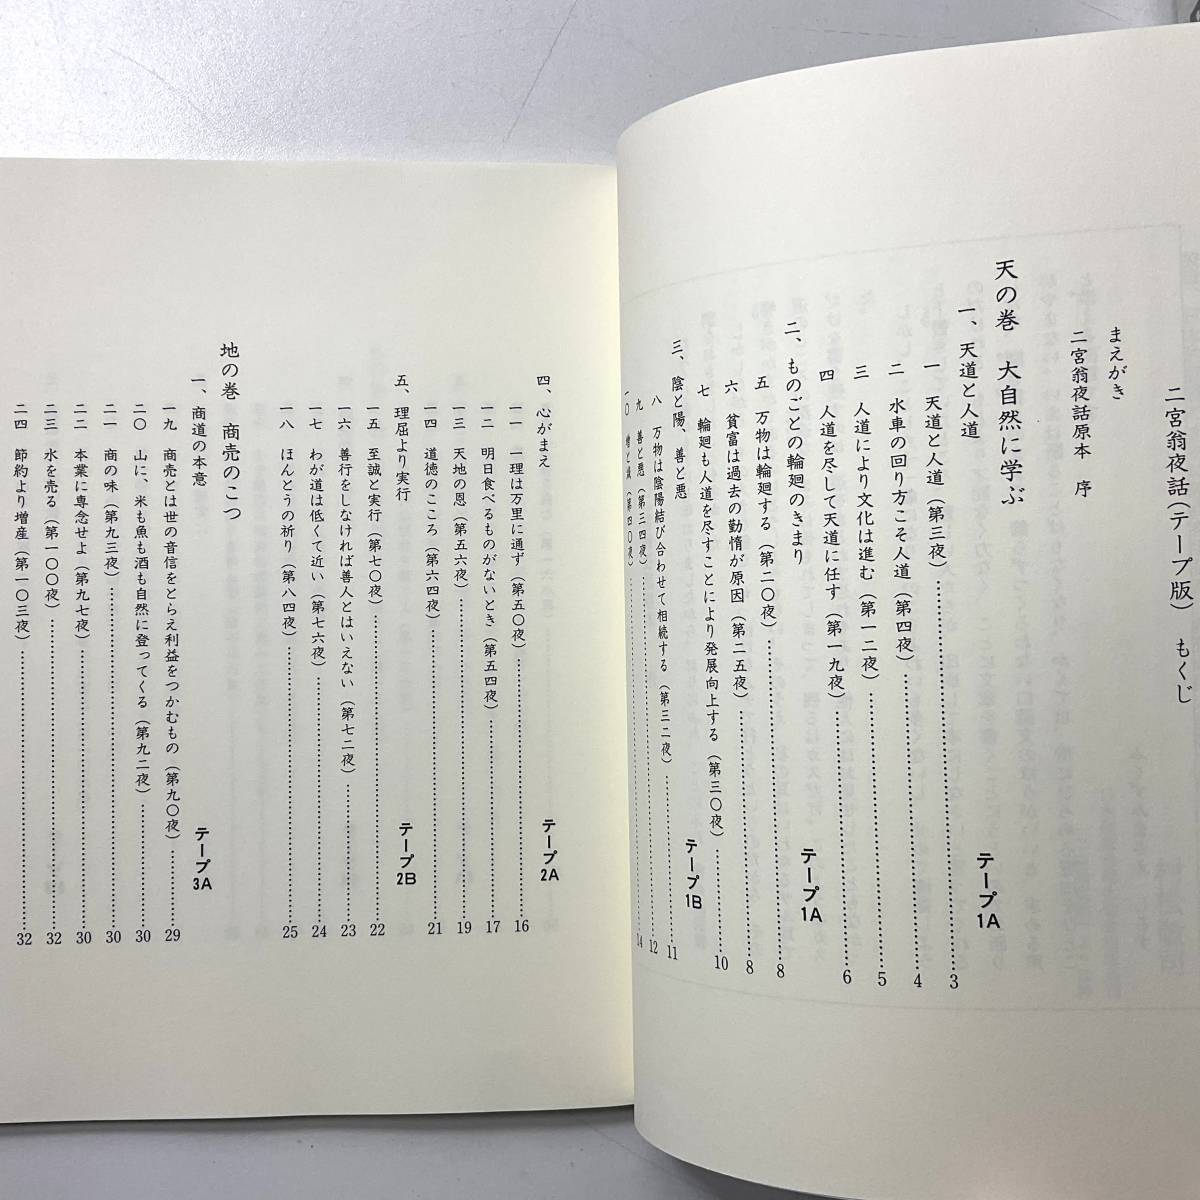 二宮翁夜話(テープ版) もくじ
まえがき
二宮翁夜話原本 序
天の巻 大自然に学ぶ
一、天道と人道 テープ1A
一 天道と人道(第三夜)……3
二 水車の回り方こそ人道(第四夜)……4
三 人道により文化は進む(第一二夜)……5
四 人道を尽して天道に任す(第一九夜)……6
二、ものごとの輪廻のきまり テープ1A
五 万物は輪廻する(第二〇夜)……8
六 貧富は過去の勤惰が原因(第二五夜)……8
七 輪廻も人道を尽すことにより発展向上する(第三〇夜)……10
三、陰と陽、善と悪 テープ1B
八 万物は陰陽結び合わせて相続する(第三二夜)……11
九 善と悪(第三四夜)……12
一〇(第四〇夜)……14
四、心がまえ テープ2A
一一 一理は万里に通ず(第五〇夜)……16
一二 明日食べるものがないとき(第五四夜)……17
一三 天地の恩(第五六夜)……19
一四 道徳のこころ(第六四夜)……21
五、理屈より実行 テープ2B
一五 至誠と実行(第七〇夜)……22
一六 善行をしなければ善人とはいえない(第七二夜)……23
一七 わが道は低くて近い(第七六夜)……24
一八 ほんとうの祈り(第八四夜)……25
地の巻 商売のこつ
一、商道の本意 テープ3A
一九 商売とは世の音信をとらえ利益をつかむもの(第九〇夜)……29
二〇 山に、米も魚も酒も自然に登ってくる(第九二夜)……30
二一 商の味(第九三夜)……30
二二 本業に専念せよ(第九七夜)……30
二三 水を売る(第一〇〇夜)……32
二四 節約より増産(第一〇三夜)……32